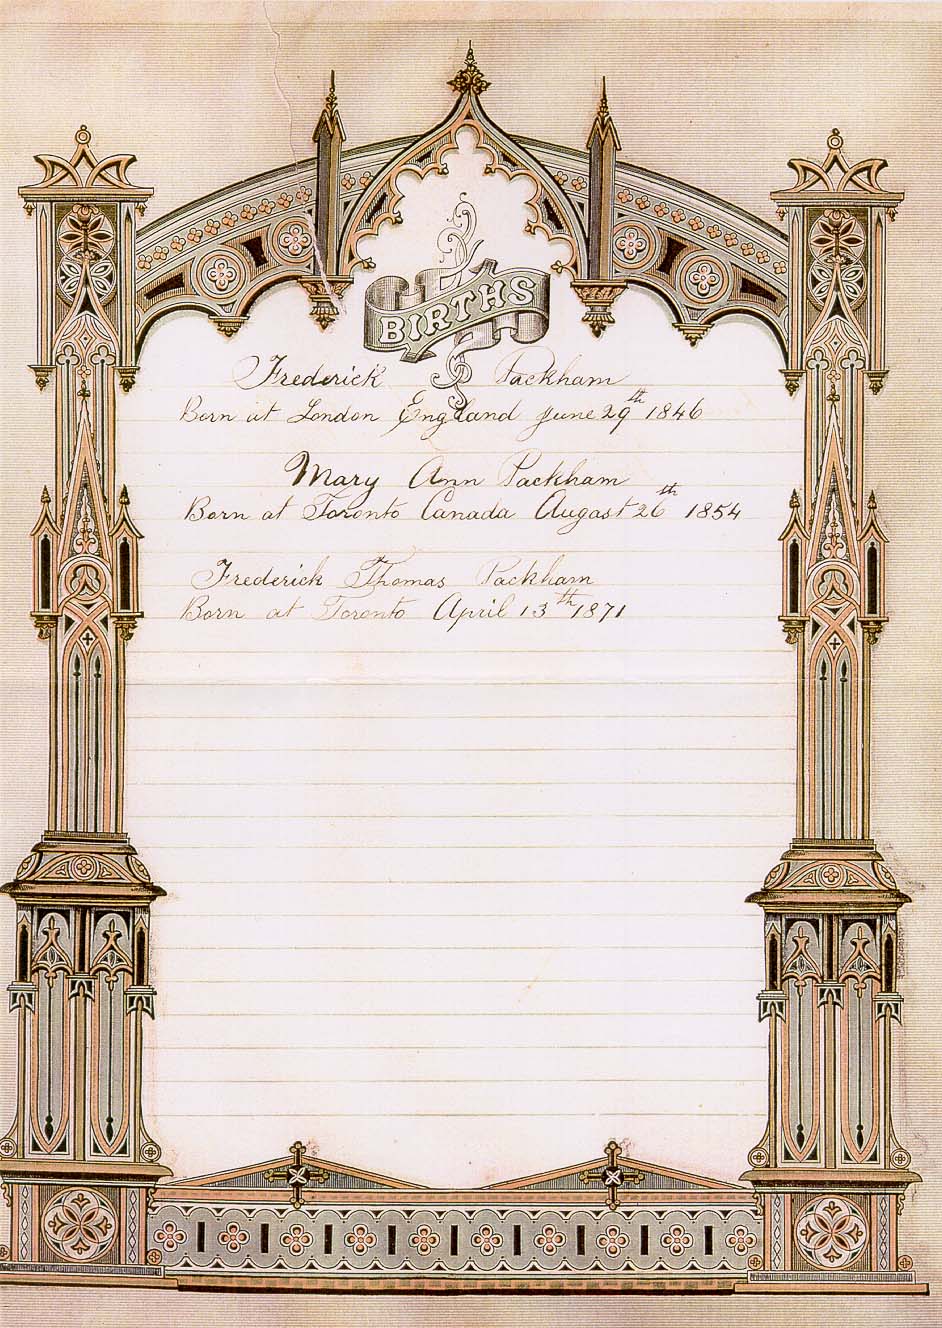 BIRTHS
Frederick Packham
Born at London England June 29th 1846
Mary Ann Packham
Born at Toronto Canada Augast 26th 1854
Frederick Thomas Packham
Born at Toronto April 13th 1871